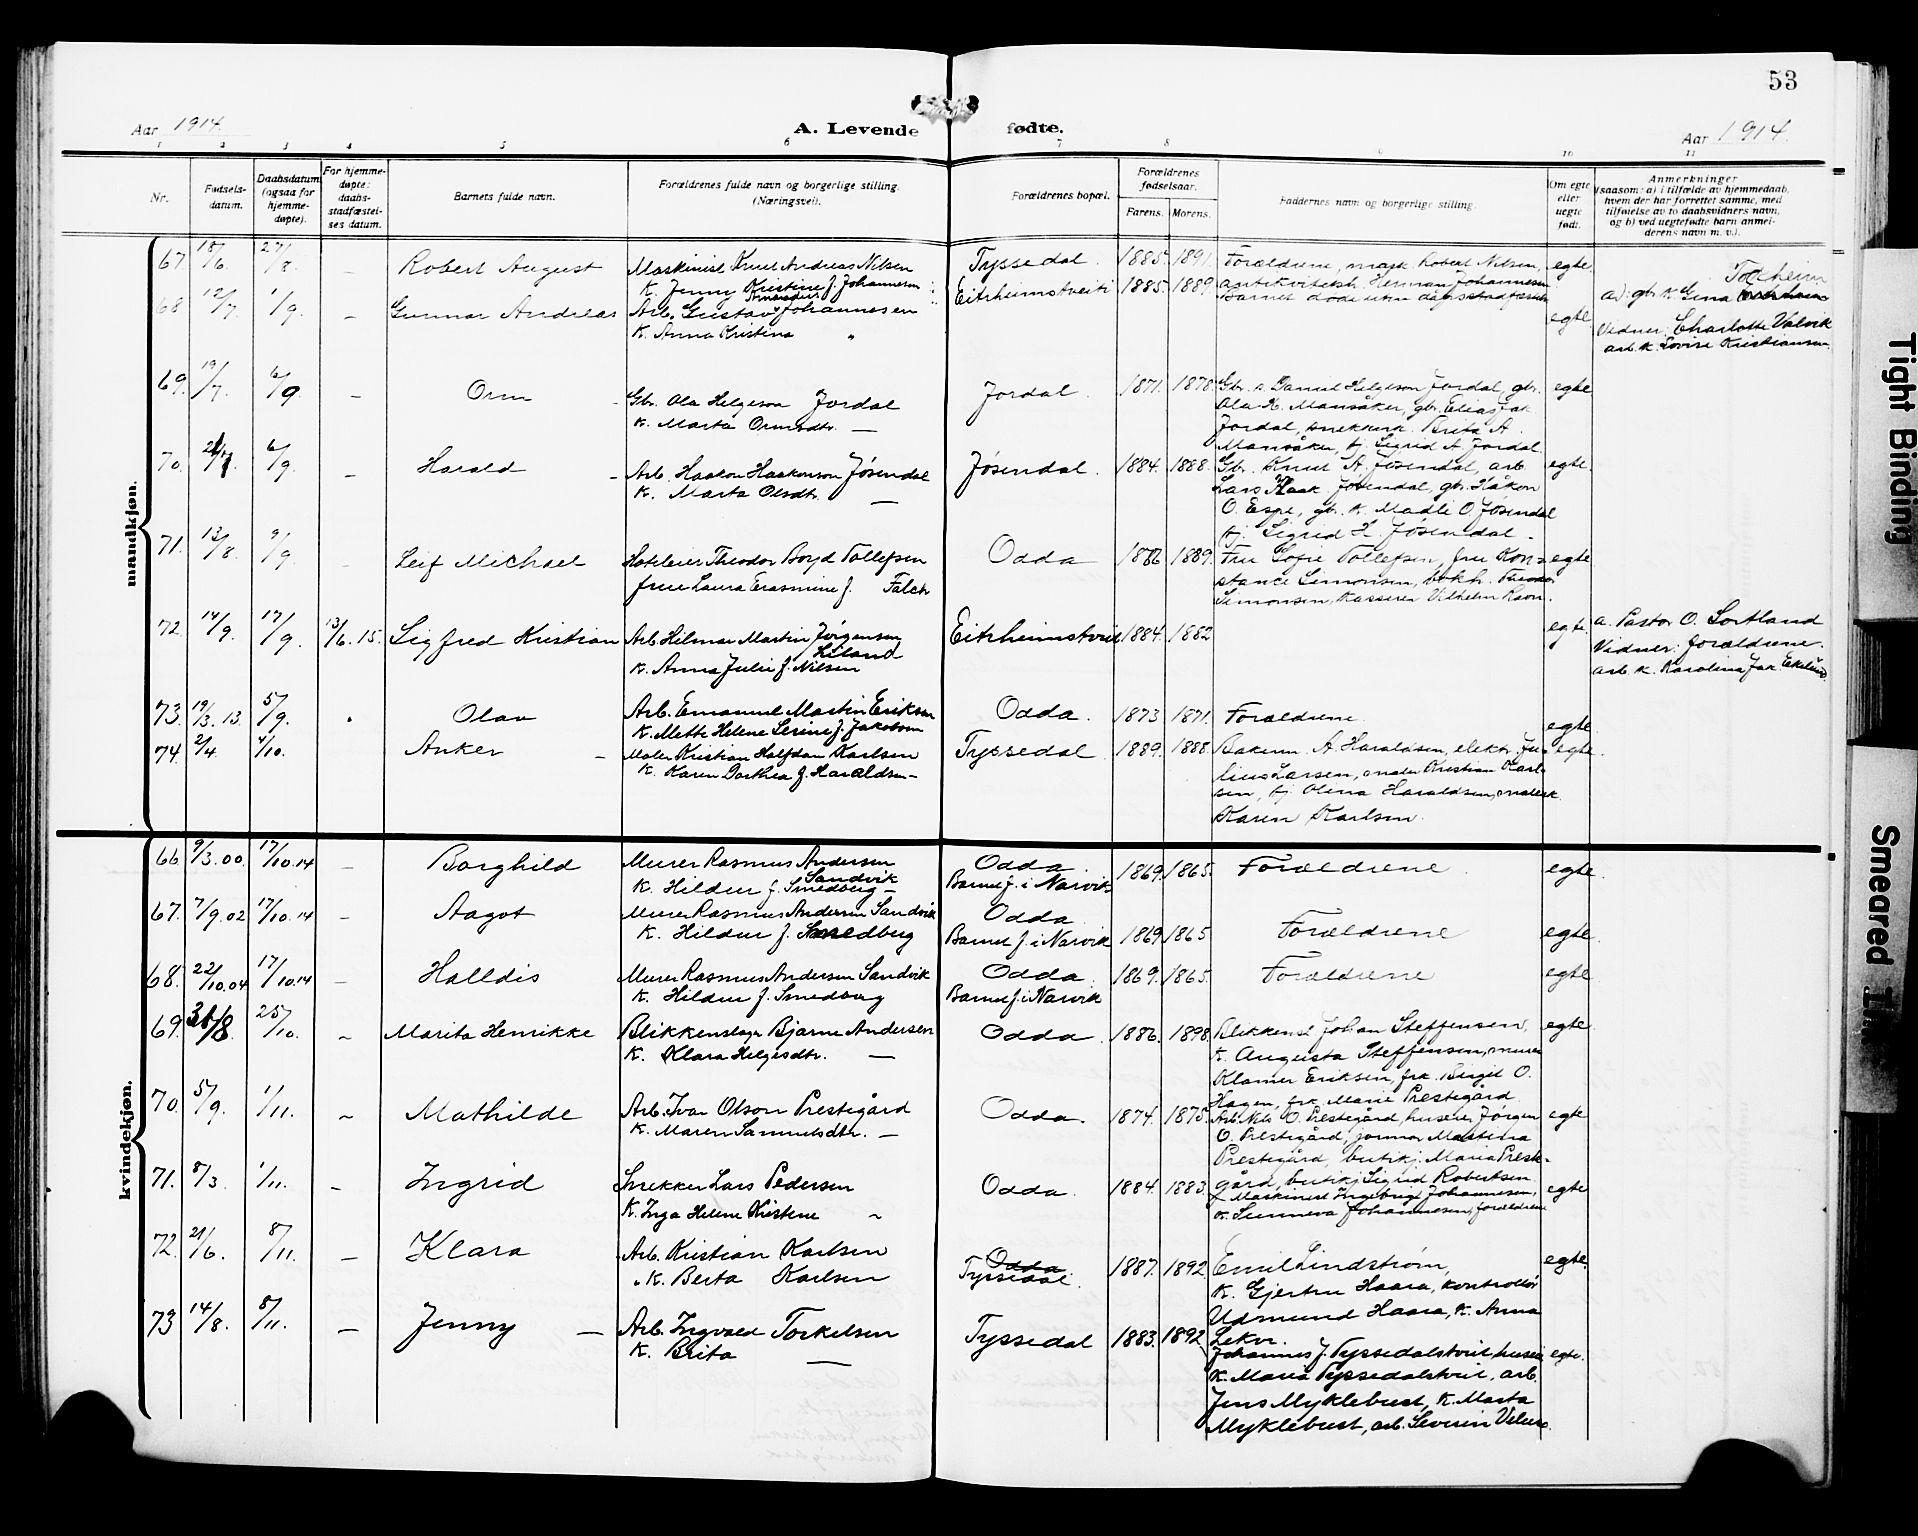 53
Aar 1914.
A. Levende fødte.
Aar 1914.
1 2 3 4 5 6 7 8 9 10 11
Nr.
Fødsels-
datum.
Daabsdatum
(ogsaa for
hjemme-
døpte).
For hjemme-
døpte:
daabs-
stadfæstel-
ses datum.
Barnets fulde navn.
Forældrenes fulde navn og borgerlige stilling.
(Næringsvei).
Forældrenes bopæl.
Forældrenes
fødselsaar.
Farens. Morens.
Faddernes navn og borgerlige stilling.
Om egte
eller
uegte
født.
Anmerkninger
(saasom: a) i tilfælde av hjemmedaab,
hvem der har forrettet samme, med
tilføielse av to daabsvidners navn,
og b) ved uegtefødte barn anmel-
derens navn m. v.).
mandkjøn.
67. 18/6. 27/8. – Robert August
Maskinist Knut Andreas Nilsen
K. Jenny Kristine f. Johannesen
Tyssedal. 1885. 1891.
Forældrene, mask. Robert Nilsen,
Herman Johannesen
egte
68 12/7. 1/9. – Gunnar Andreas
Arb. Gustav Johannesen
K. Anna Kristina „
Eitrheimstveit 1885. 1889.
Barnet døde uten daabsstadfæstelse
egte
Tokheim
a): gbr. K. Gina
Vidner: Charlotte Valvik
arb. K. Lovise Kristiansen.
69. 19/7. 6/9. – Orm –
Gbr. Ola Helgeson Jordal
K. Marta Ormsdtr. —
Jordal. 1871. 1878.
Gbr. s. Daniel Helgeson Jordal, gbr.
Ola K. Mansåker, gbr. Elias Jak.
Jordal, snekkerk. Brita A.
Mansåker, pj. Sigrid A. Jordal.
egte
70. 6/9. – Harald –
Arb. Haakon Haakonson Jøsendal
K. Marta Olsdtr. —
Jøsendal. 1884. 1888.
Gbr. Knut A. Jøsendal, arb.
Lars Haak. Jøsendal, gbr. Håkon
O. Espe, gbr. K. Madli O. Jøsendal
pj. Sigrid H. Jøsendal.
egte
71. 13/8. 9/9. Leif Michael
Hoteleier Theodor Boyd Tollefsen
frue Laura Erasmine f. Falch
Odda 1889.
Fru Sofie Tollefsen, fru Kon-
stance Simonsen, bokh. Theodor
Simonsen, kasserer Vilhelm Ravn.
egte
72. 14/9. 17/9. 13/6. 15. Sigfred Kristian
Arb. Hilmar Martin Jørgensen
Liland
K. Anna Julie f. Nilsen
Eitrheimstveit 1884. 1882
egte.
a. Pastor O. Sortland
Vidner: forældrene.
arb. K. Karolina Jak. Eklund.
73. 19/3. 13. 5/9. Olav
Arb. Emanuel Martin Eriksen
K. Mette Helene Serine f. Jakobsen
Odda. 1873 1871. Forældrene. egte.
74. 2/4. 4/10. Anker –
Maler Kristian Halfdan Karlsen
K. Karen Dorthea f. Haraldsen –
Tyssedal 1889. 1888.
Bakerm. A. Haraldsen, elektr. Ju-
lius Larsen, maler Kristian Karl-
sen, pj. Olina Haraldsen, malerk.
Karen Karlsen.
egte.
kvindekjøn.
66. 9/3. 00. 17/10. 14 – Borghild
Murer Rasmus Andersen
Sandvik
K. Hildur f. Smedberg –
Odda
Barnet f. i Narvik
1869. 1865. Forældrene. egte.
67. 7/9. 02 17/10. 14 – Aagot
Murer Rasmus Andersen Sandvik
K. Hildur f. Smedberg
Odda
Barnet f. i Narvik
1869 1865 Forældrene egte.
68. 22/10. 04 17/10. 14 – Halldis
Murer Rasmus Andersen Sandvik
K. Hildur f. Smedberg
Odda.
Barnet f. i Narvik
1869. 1865. Forældrene egte
69. 25/10. – Marita Henrikke
Blikkenslager Bjarne Andersen
K. Klara Helgesdtr. —
Odda. 1886. 1898.
Blikkensl. Johan Steffensen,
K. Augusta Steffensen, murer
Klamer Eriksen, frk. Birgit O.
Hagen, frk. Marie Prestegård.
egte
70. 5/9. 1/11. – Mathilde
Arb. Ivar Olson Prestegård
K. Maren Samuelsdtr. –
Odda. 1874. 1875.
Arb. Nils O. Prestegård, huseier Jørgen
O. Prestegård, jormor Martina
Prestegård, butikj. Maria Preste-
gård, butikj. Sigrid Robertsen
egte
71. 8/3. 1/11. – Ingrid
Snekker Lars Pedersen
K. Inga Helene Kristine „
Odda. 1884. 1883.
Maskinist Ingebrigt Johannesen,
K. Sunneva Johannesen, forældrene
egte
72. 21/6. 8/11. – Klara
Arb. Kristian Karlsen
K. Berta Karlsen
Odda
Tyssedal.
1887. 1892
Emil Lindstrøm,
K. Gjertru Haara, kontrollør
Udmund Haara, K. Anna
Lekv.
egte.
73 14/8. 8/11. – Jenny –
Arb. Ingvald Torkelsen
K. Brita —
Tyssedal 1883. 1892
Johannes J. Tyssedalstveit, huseier
K. Maria Tyssedalstveit, arb.
Jens Myklebust, K. Marta
Myklebust, arb. Severin
egte.
Tight Binding
Smeared Ink